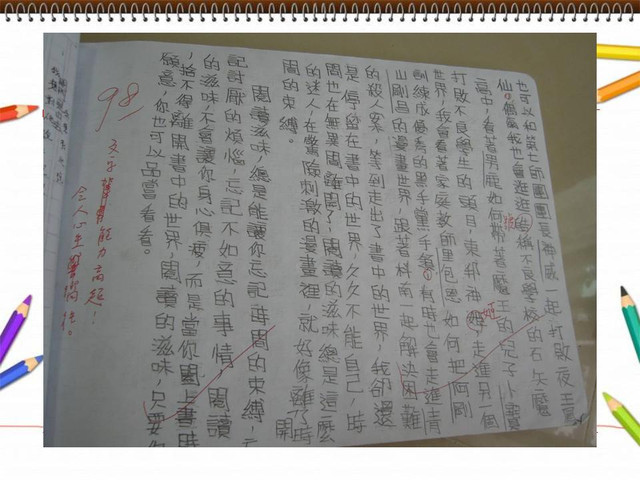 也可以和第七師團團長神威一起打敗夜王
仙。偶爾我也會逛逛號稱不良學校的石矢魔
高中，看著男鹿如何帶著魔王的兒子小
打敗不良學生的頭目，東邦神姬。走進另一個
世界，我會看著家庭教師里包恩如何把阿剛
訓練成優秀的黑手黨手領。有時也會走進青
山剛昌的漫畫世界，跟著柯南一起解決困難
的殺人案，等到走出了書中的世界，我卻還
是停留在書中的世界，久久不能自己，時
間也在無異間離開了！閱讀的滋味總是這麼
的迷人，在驚險刺激的漫畫裡，就好像離了時
間的束縛。
閱讀滋味，總是能讓你忘記時間的束縛，忘
記討厭的煩惱，忘記不如意的事情，閱讀
的滋味不會讓你身心俱疲，而是當你闔上書時
，捨不得離開書中的世界，閱讀的滋味，只要你
願意，你也可以品嘗看看。
98
文字能力高超！
令人心生嚮往。